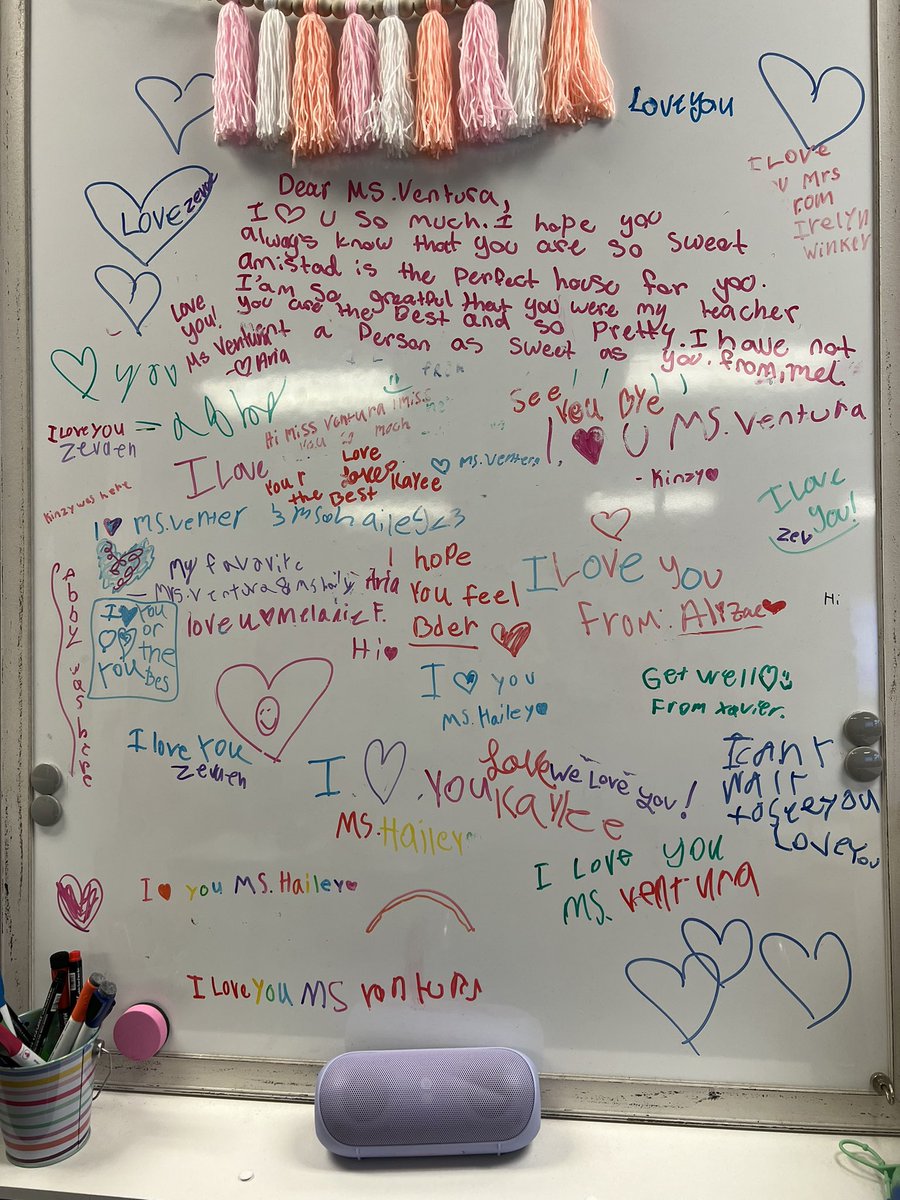 Love you
I Love
U Mrs
rom
Irelyn
winker
LOVE zevon
Dear MS. Ventura,
I ♡ U so much. I hope you
always know that you are so sweet
amistad is the perfect house for you.
I'am so greatful that you were my teacher
You are the Best and so Pretty. I have not
a Person as sweet as you. from, mel
Love
you!
Ms Venturnt
-♡ Aria
♡ you
from
See
you Bye
I love you =
Zevden
Hi miss ventura I miss
You so moch
I ♥ U MS. Ventura
- Kinzy♥
I Love
Your
the Best
Love
Love
Kayee
♡ Ms. Ventera
Kinzy was here
I Love
You!
zev
I ♥ MS. venter
Ms Hailey <3
My favorite
Mrs. Ventura & Ms Haily
Aria
I hope
You feel
Bder ♥
I Love you
From: Alizae♥
Hi
Abby was here
I ♥ You
You or
the
Bes
love u ♥ Melanie F.
Hi♥
I ♡ you
MS. Hailey♥
Get well♡
From xavier.
I love You
Zevden
I ♡ You
MS. Hailey
Love
Kaylee
We Love You!
I cant
wait
to see you
Love you
I ♥ you MS. Hailey♥
I Love you
MS. ventura
I Love You MS ventura